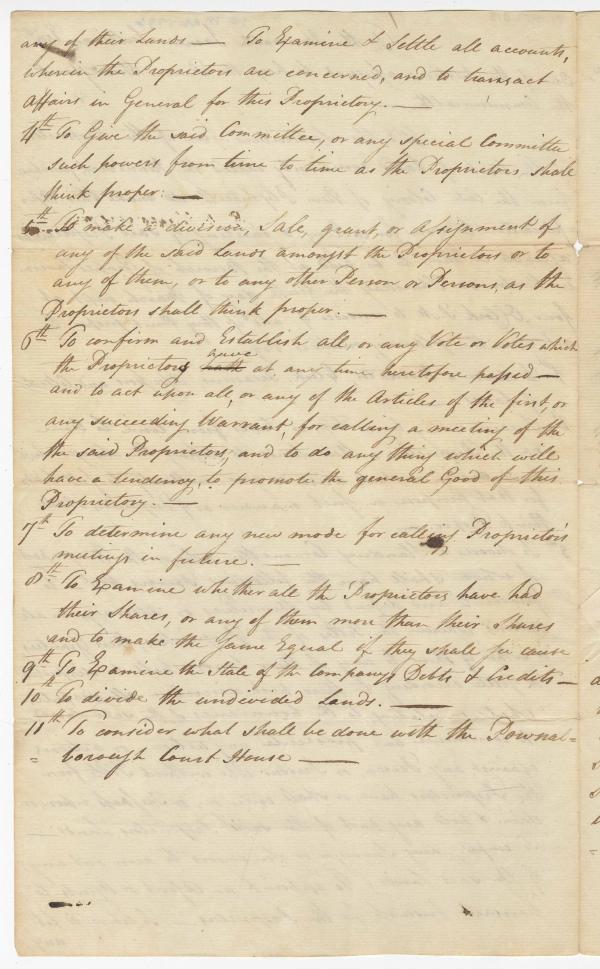 any of their Lands — To Examine & Settle all accounts,
wherein the Proprietors are concerned, and to transact
affairs in General for this Proprietory. —
4th To Give the said Committee, or any special Committee
such powers from time to time as the Proprietors shall
think proper: —
5th To make a division, Sale, grant, or assignment of
any of the said Lands amongst the Proprietors or to
any of them, or to any other Person or Persons, as the
Proprietors shall think proper. —
6th To confirm and Establish all, or any Vote or Votes which
have
the Proprietors hath at any time heretofore passed —
and to act upon all, or any of the Articles of the first, or
any succeeding Warrant, for calling a meeting of the
the said Proprietors, and to do any thing which will
have a tendency, to promote the general Good of this
Proprietory. —
7th To determine any new mode for calling Proprietors
meetings in future. —
8th To Examine whether all the Proprietors have had
their Shares, or any of them more than their Shares
and to make the same Equal if they shall see cause
9th To Examine the State of the Companys Debts & Credits —
10th To divide the undivided Lands. —
11th To consider what shall be done with the Pownal=
= borough Court House —